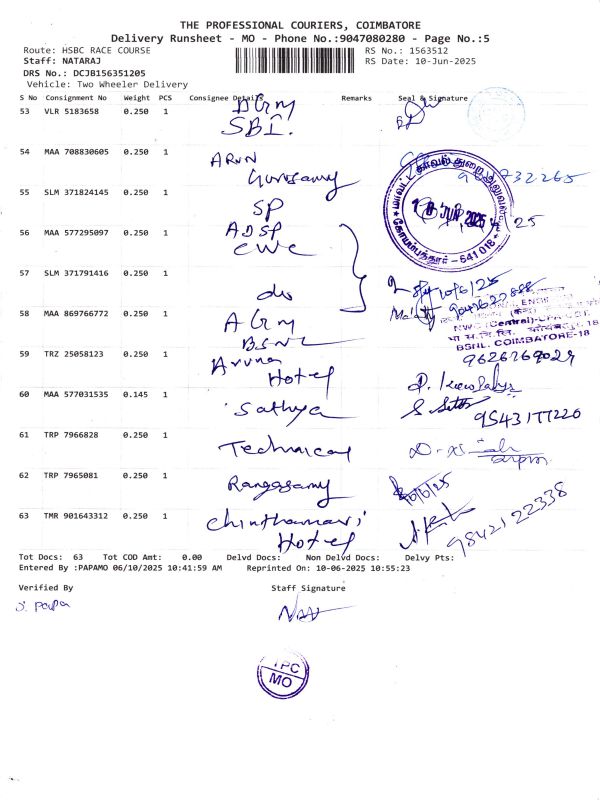 THE PROFESSIONAL COURIERS, COIMBATORE
Delivery Runsheet - MO - Phone No.:9047080280 - Page No.:5
Route: HSBC RACE COURSE RS No.: 1563512
Staff: NATARAJ RS Date: 10-Jun-2025
DRS No.: DCJB156351205
Vehicle: Two Wheeler Delivery
S No Consignment No Weight PCS Consignee Details Remarks Seal & Signature
53 VLR 5183658 0.250 1 DGM
SBI.
54 MAA 708830605 0.250 1 ARUN
Gurusamy
55 SLM 371824145 0.250 1 SP
56 MAA 577295097 0.250 1 ADSP
CWC
57 SLM 371791416 0.250 1 do 10/6/25
58 MAA 869766772 0.250 1 AGM
BSNL
NWO (Central)
BSNL, COIMBATORE-18
59 TRZ 25058123 0.250 1 Aruna 9626269029
Hotel
60 MAA 577031535 0.145 1 Sathya 9543177220
61 TRP 7966828 0.250 1 Technical
62 TRP 7965081 0.250 1 Rangasamy 10/6/25
63 TMR 901643312 0.250 1 Chinthamani 9842122338
Hotel
Tot Docs: 63 Tot COD Amt: 0.00 Delvd Docs: Non Delvd Docs: Delvy Pts:
Entered By :PAPAMO 06/10/2025 10:41:59 AM Reprinted On: 10-06-2025 10:55:23
Verified By Staff Signature
TPC
MO